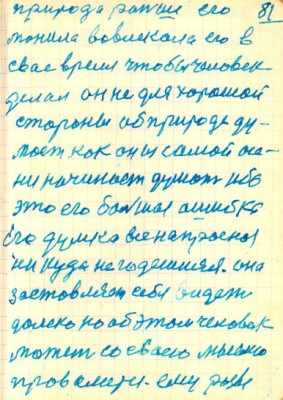 природа ранши его 81
монила вовлекала его в
свае время чтобы человек
делал он не для хорошой
стороны об природе ду-
моет как он и самой
ни начинает думат ибо
это его большая ашибка
Его думка все напрасноя
ни куда не годешияся. она
заставляет себя видеть
далеко но об этом человек
может со своею мыслю
провалится. ему